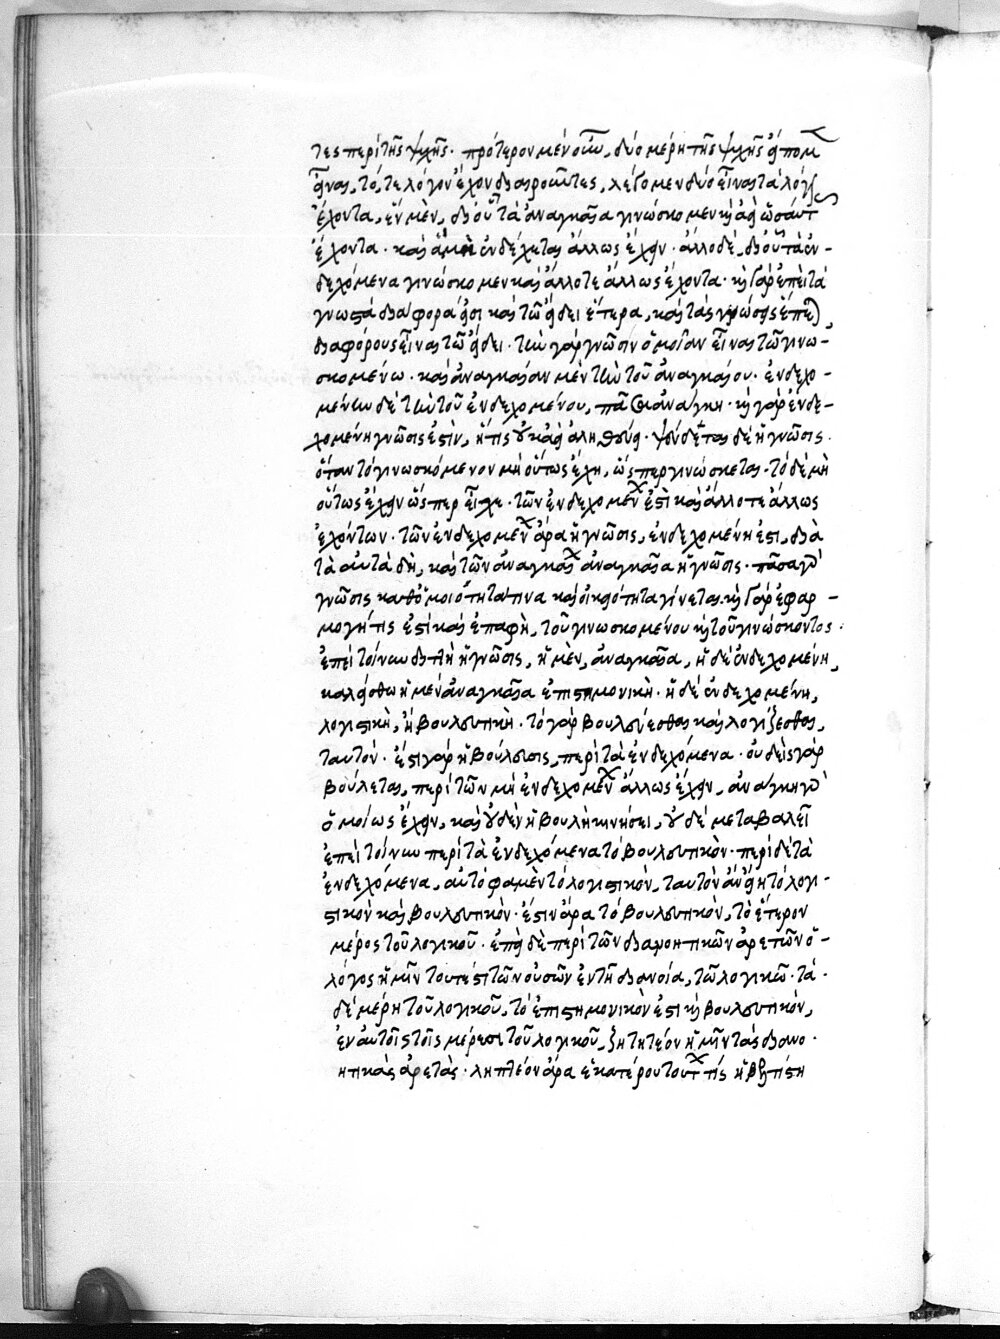 τες περὶ τῆς ψυχῆς. πρότερον μὲν οὖν, δύο μέρη τῆς ψυχῆς εἰπόντες
εἶναι, τό, τε λόγον ἔχον διαιροῦντες, λέγομεν δύο εἶναι τὰ λόγον
ἔχοντα, ἓν μὲν, δι' οὗ τὰ ἀναγκαῖα γινώσκομεν καὶ ἀεὶ ὡσαύτως
ἔχοντα. καὶ ἃ μὴ ἐνδέχεται ἄλλως ἔχειν. ἄλλο δὲ, δι' οὗ τὰ ἐν-
δεχόμενα γινώσκομεν καὶ ἄλλοτε ἄλλως ἔχοντα. καὶ γὰρ ἐπεὶ τὰ
γνωστὰ διάφορά εἰσι καὶ τῷ εἴδει ἕτερα, καὶ τὰς γνώσεις ἔπει
διαφόρους εἶναι τῷ εἴδει. τὴν γὰρ γνῶσιν ὁμοίαν εἶναι τῷ γινω-
σκομένῳ. καὶ ἀναγκαίαν μὲν τὴν τοῦ ἀναγκαίου. ἐνδεχο-
μένην δὲ τὴν τοῦ ἐνδεχομένου, πᾶσα ἀνάγκη. καὶ γὰρ ἐνδε-
χομένη γνῶσις ἐστὶν, ἥτις οὐκ ἀεὶ ἀληθεύει. ψεύδεται δὲ ἡ γνῶσις.
ὅταν τὸ γινωσκόμενον μὴ οὕτως ἔχῃ, ὥσπερ γινώσκεται. τὸ δὲ μὴ
οὕτως ἔχειν ὥσπερ εἶχε. τῶν ἐνδεχομένων ἐστὶ καὶ ἄλλοτε ἄλλως
ἐχόντων. τῶν ἐνδεχομένων ἄρα ἡ γνῶσις, ἐνδεχομένη ἐστι, διὰ
τὰ αὐτὰ δὴ, καὶ τῶν ἀναγκαίων ἀναγκαῖα ἡ γνῶσις. πᾶσα γὰρ
γνῶσις καθ' ὁμοιότητα τινα καὶ οἰκειότητα γίνεται. καὶ γὰρ ἐφαρ-
μογή τίς ἐστὶ καὶ ἐπαφὴ, τοῦ γινωσκομένου καὶ τοῦ γινώσκοντος.
ἐπεὶ τοίνυν διττὴ ἡ γνῶσις, ἡ μὲν, ἀναγκαῖα, ἡ δὲ ἐνδεχομένη,
καλείσθω ἡ μὲν ἀναγκαῖα ἐπιστημονικὴ. ἡ δὲ ἐνδεχομένη,
λογιστικὴ, ἢ βουλευτικὴ. τὸ γὰρ βουλεύεσθαι καὶ λογίζεσθαι,
ταυτόν. ἔστι γὰρ ἡ βούλευσις, περὶ τὰ ἐνδεχόμενα. οὐδεὶς γὰρ
βούλεται, περὶ τῶν μὴ ἐνδεχομένων ἄλλως ἔχειν, ἀνάγκη γὰρ
ὁμοίως ἔχειν, καὶ οὐδὲν ἡ βουλὴ κινήσει, οὐδὲ μεταβαλεῖ
ἐπεὶ τοίνυν περὶ τὰ ἐνδεχόμενα τὸ βουλευτικὸν. περὶ δὲ τὰ
ἐνδεχόμενα, αὐτὸ φαμὲν τὸ λογιστικὸν, ταυτὸν ἂν εἴη τὸ λογι-
στικὸν καὶ βουλευτικὸν. ἔστιν ἄρα τὸ βουλευτικὸν, τὸ ἕτερον
μέρος τοῦ λογικοῦ. ἐπεὶ δὲ περὶ τῶν διανοητικῶν ἀρετῶν ὁ-
λόγος ἡμῖν τουτέστι τῶν οὐσῶν ἐν τῇ διανοίᾳ, τῷ λογικῷ. τὰ
δὲ μέρη τοῦ λογικοῦ, τὸ ἐπιστημονικὸν ἐστὶ καὶ βουλευτικὸν,
ἐν αὐτοῖς τοῖς μέρεσι τοῦ λογικοῦ, ζητητέον ἡμῖν τὰς διανο-
ητικὰς ἀρετὰς. ληπτέον ἄρα ἑκατέρου τούτων τίς ἡ βελτίστη